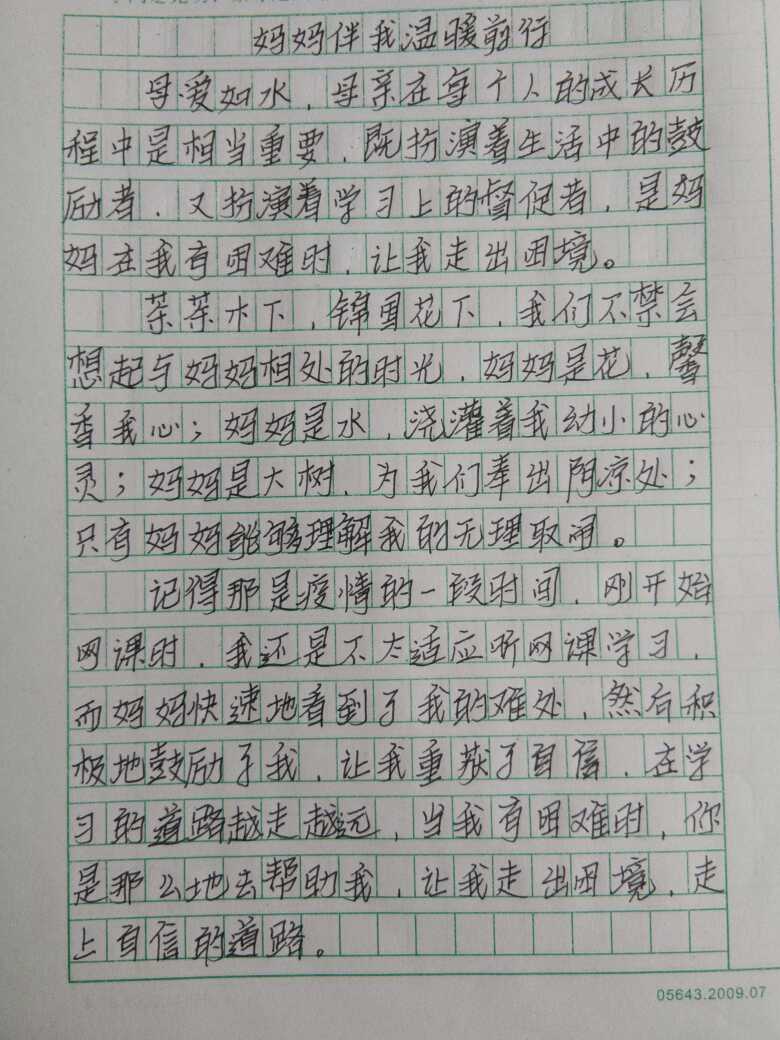 妈妈伴我温暖前行
母爱如水，母亲在每个人的成长历
程中是相当重要，既扮演着生活中的鼓
励者，又扮演着学习上的督促者，是妈
妈在我有困难时，让我走出困境。
茶茶木下，锦雪花下，我们不禁会
想起与妈妈相处的时光，妈妈是花，馨
香我心；妈妈是水，浇灌着我幼小的心
灵；妈妈是大树，为我们奉出阴凉处；
只有妈妈能够理解我的无理取闹。
记得那是疫情的一段时间，刚开始
网课时，我还是不太适应听网课学习，
而妈妈快速地看到了我的难处，然后积
极地鼓励了我，让我重获了自信，在学
习的道路越走越远，当我有困难时，你
是那么地去帮助我，让我走出困境，走
上自信的道路。
05643.2009.07